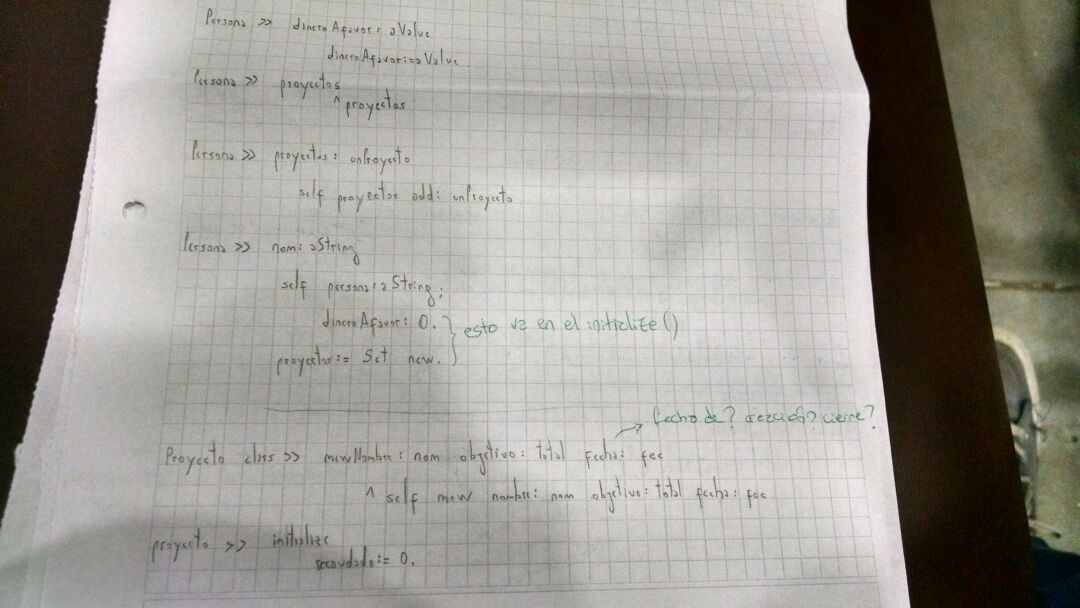 Persona >> dineroAfavor: aValue
dineroAfavor:=aValue.
Persona >> proyectos
^proyectos
Persona >> proyectos: unProyecto
self proyectos add: unProyecto
Persona >> nom: aString
self persona: aString;
dineroAfavor: 0.
} esto va en el initialize()
proyectos:= Set new.
fecha de? creación? cierre?
Proyecto class >> newNombre: nom objetivo: total fecha: fec
^ self new nombre: nom objetivo: total fecha: fec
proyecto >> initialize
recaudado:= 0.